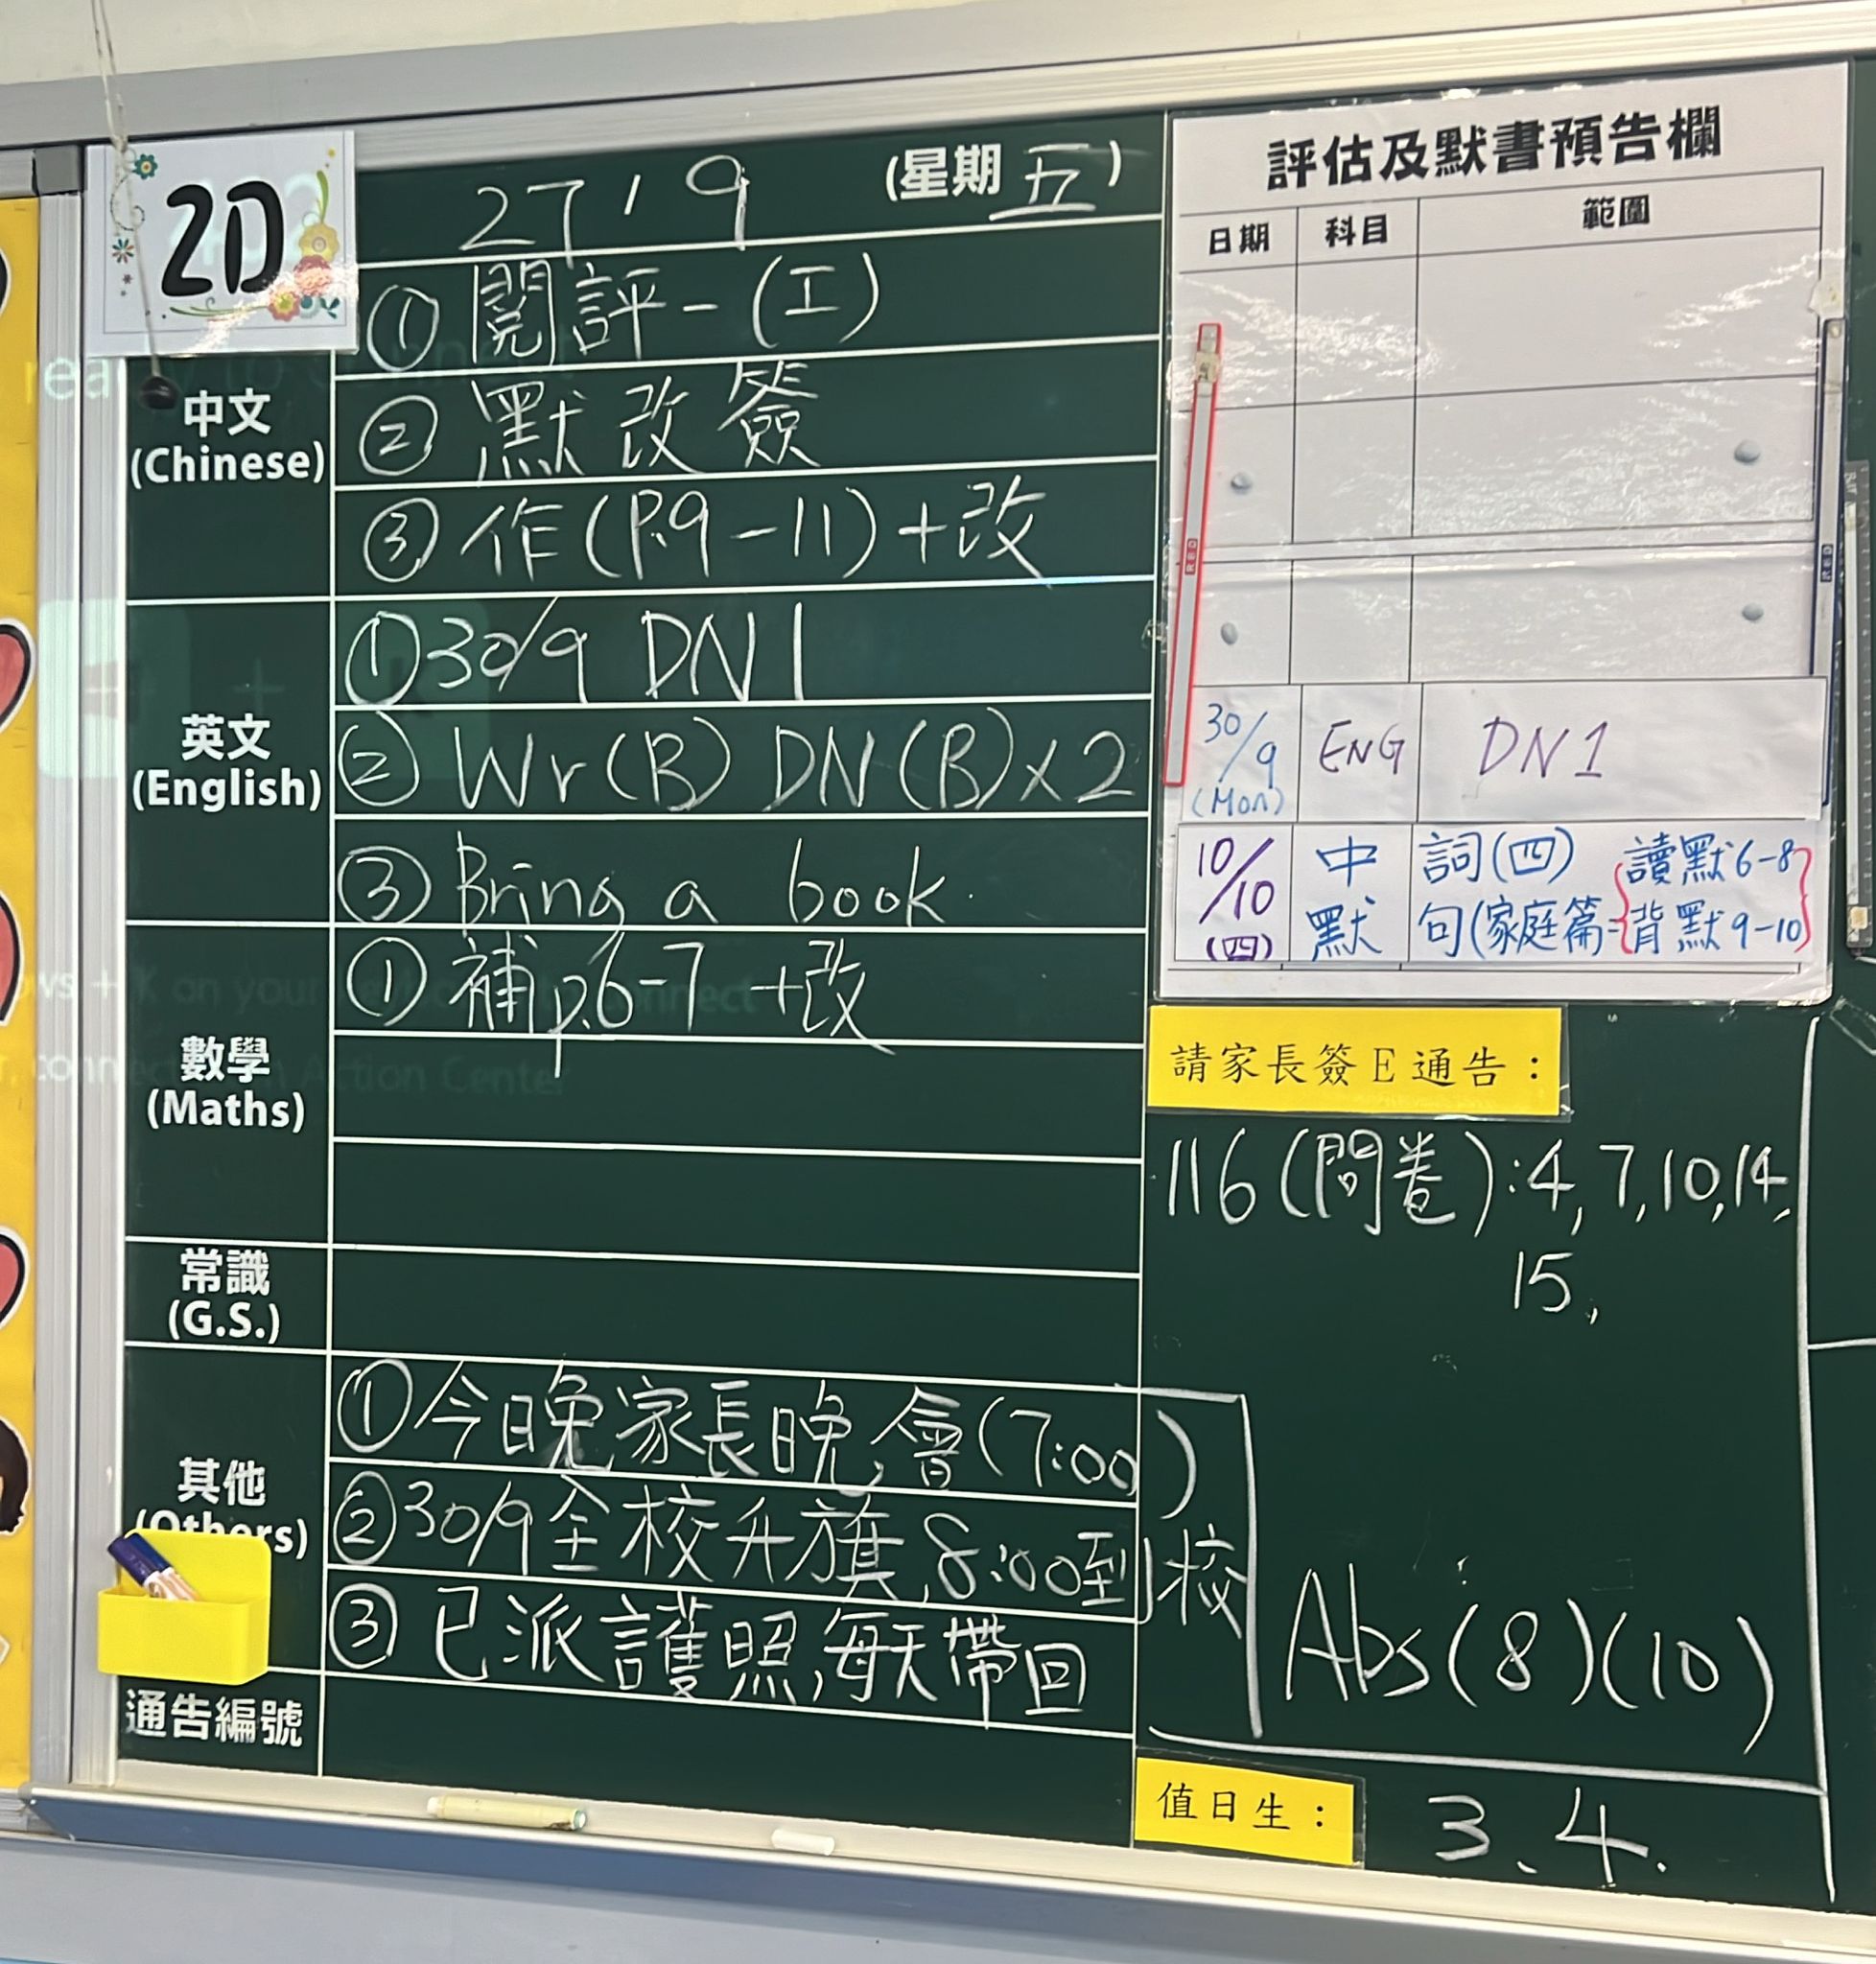 2D
27 / 9 (星期 五)
中文
(Chinese)
① 閱評-(工)
② 默改簽
③ 作(P.9-11)+改
英文
(English)
① 30/9 DN1
② Wr(B) DN(B)x2
③ Bring a book.
數學
(Maths)
① 補p.6-7 +改
常識
(G.S.)
其他
(Others)
① 今晚家長晚會(7:00)
② 30/9全校升旗,8:00到校
③ 已派護照,每天帶回
通告編號
評估及默書預告欄
日期 科目 範圍
30/9 (Mon) ENG DN1
10/10 (四) 中默 詞(四)
句(家庭篇-{讀默6-8
背默9-10}
請家長簽E通告:
116(問卷):4,7,10,14,
15,
Abs(8)(10)
值日生: 3、4.